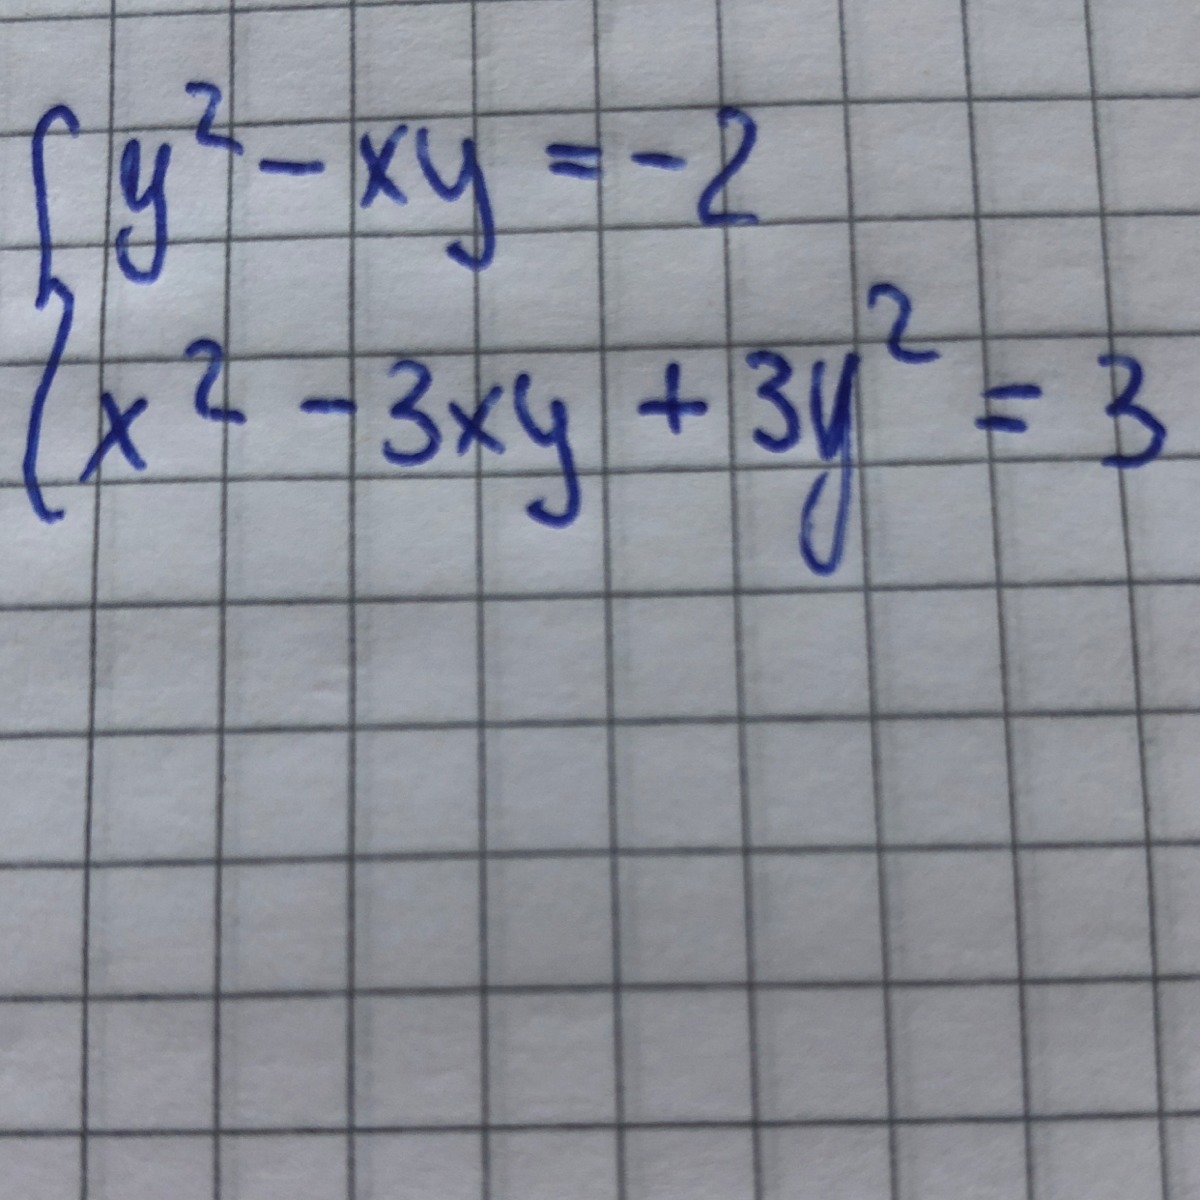 y² - xy = -2
x² - 3xy + 3y² = 3